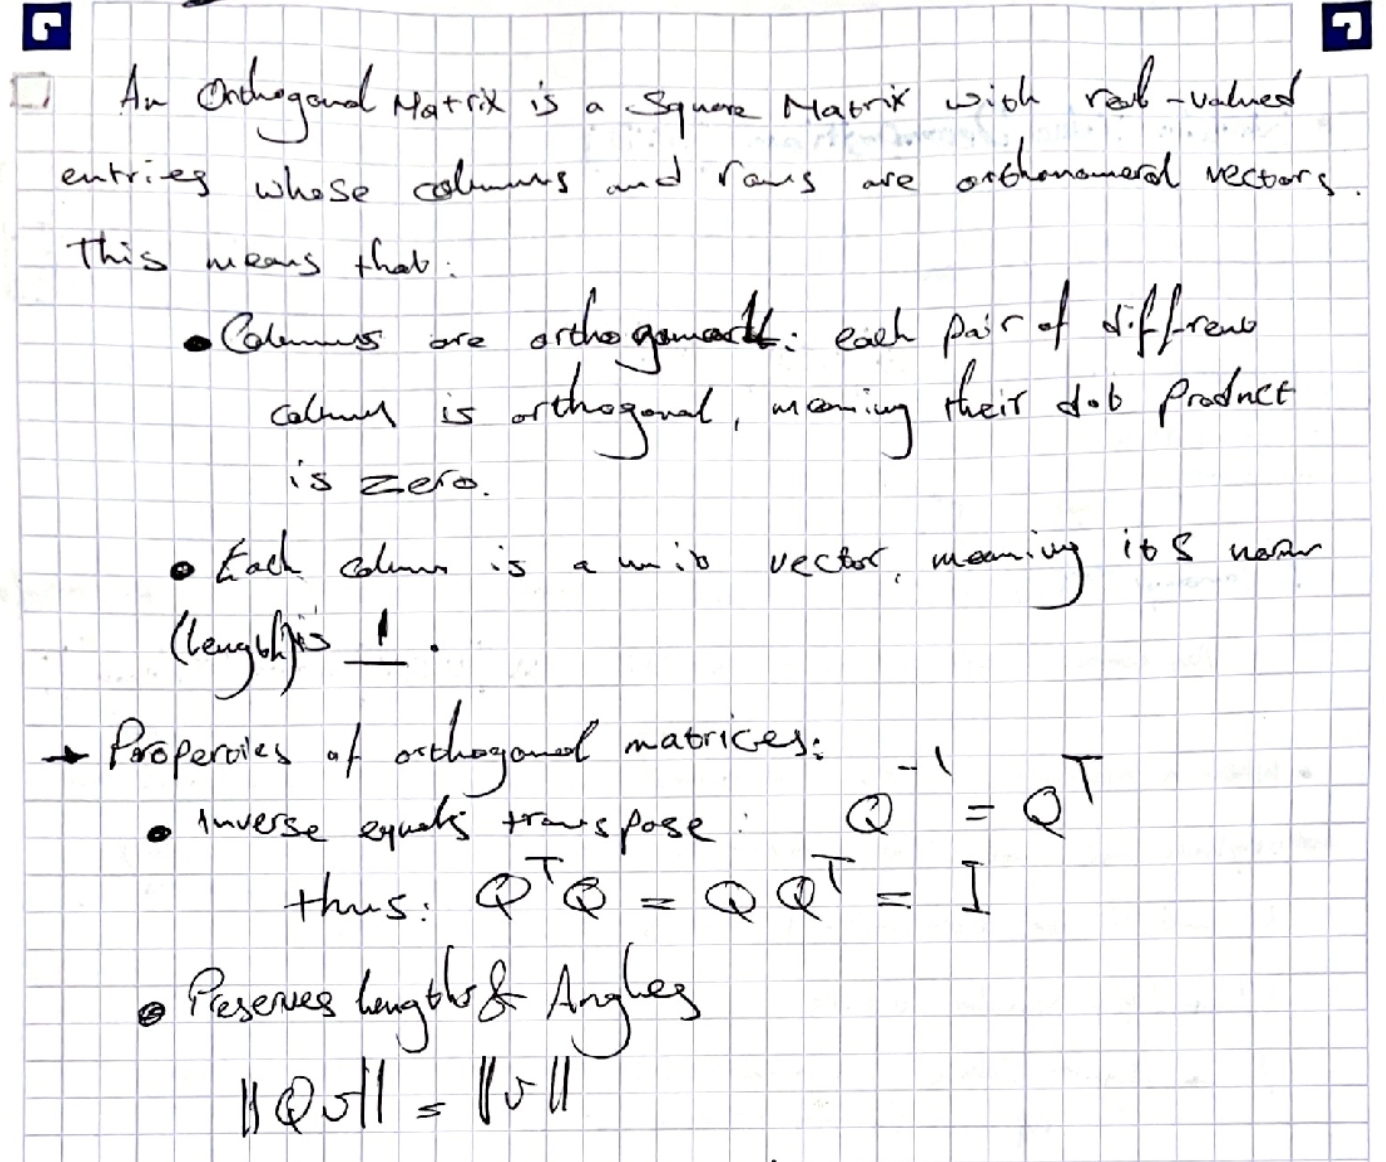 An Orthogonal Matrix is a Square Matrix with real-valued
entries whose columns and rows are orthonomeral vectors.
This means that:
• Columns are orthogonal: each pair of diffrent
column is orthogonal, meaning their dot product
is zero.
• Each column is a unit vector, meaning its norm
(length) is 1.
→ Properties of orthogonal matrices:
• Inverse equals transpose: Q⁻¹ = Qᵀ
thus: QᵀQ = QQᵀ = I
• Preserves lengths & Angles
||Qv|| = ||v||